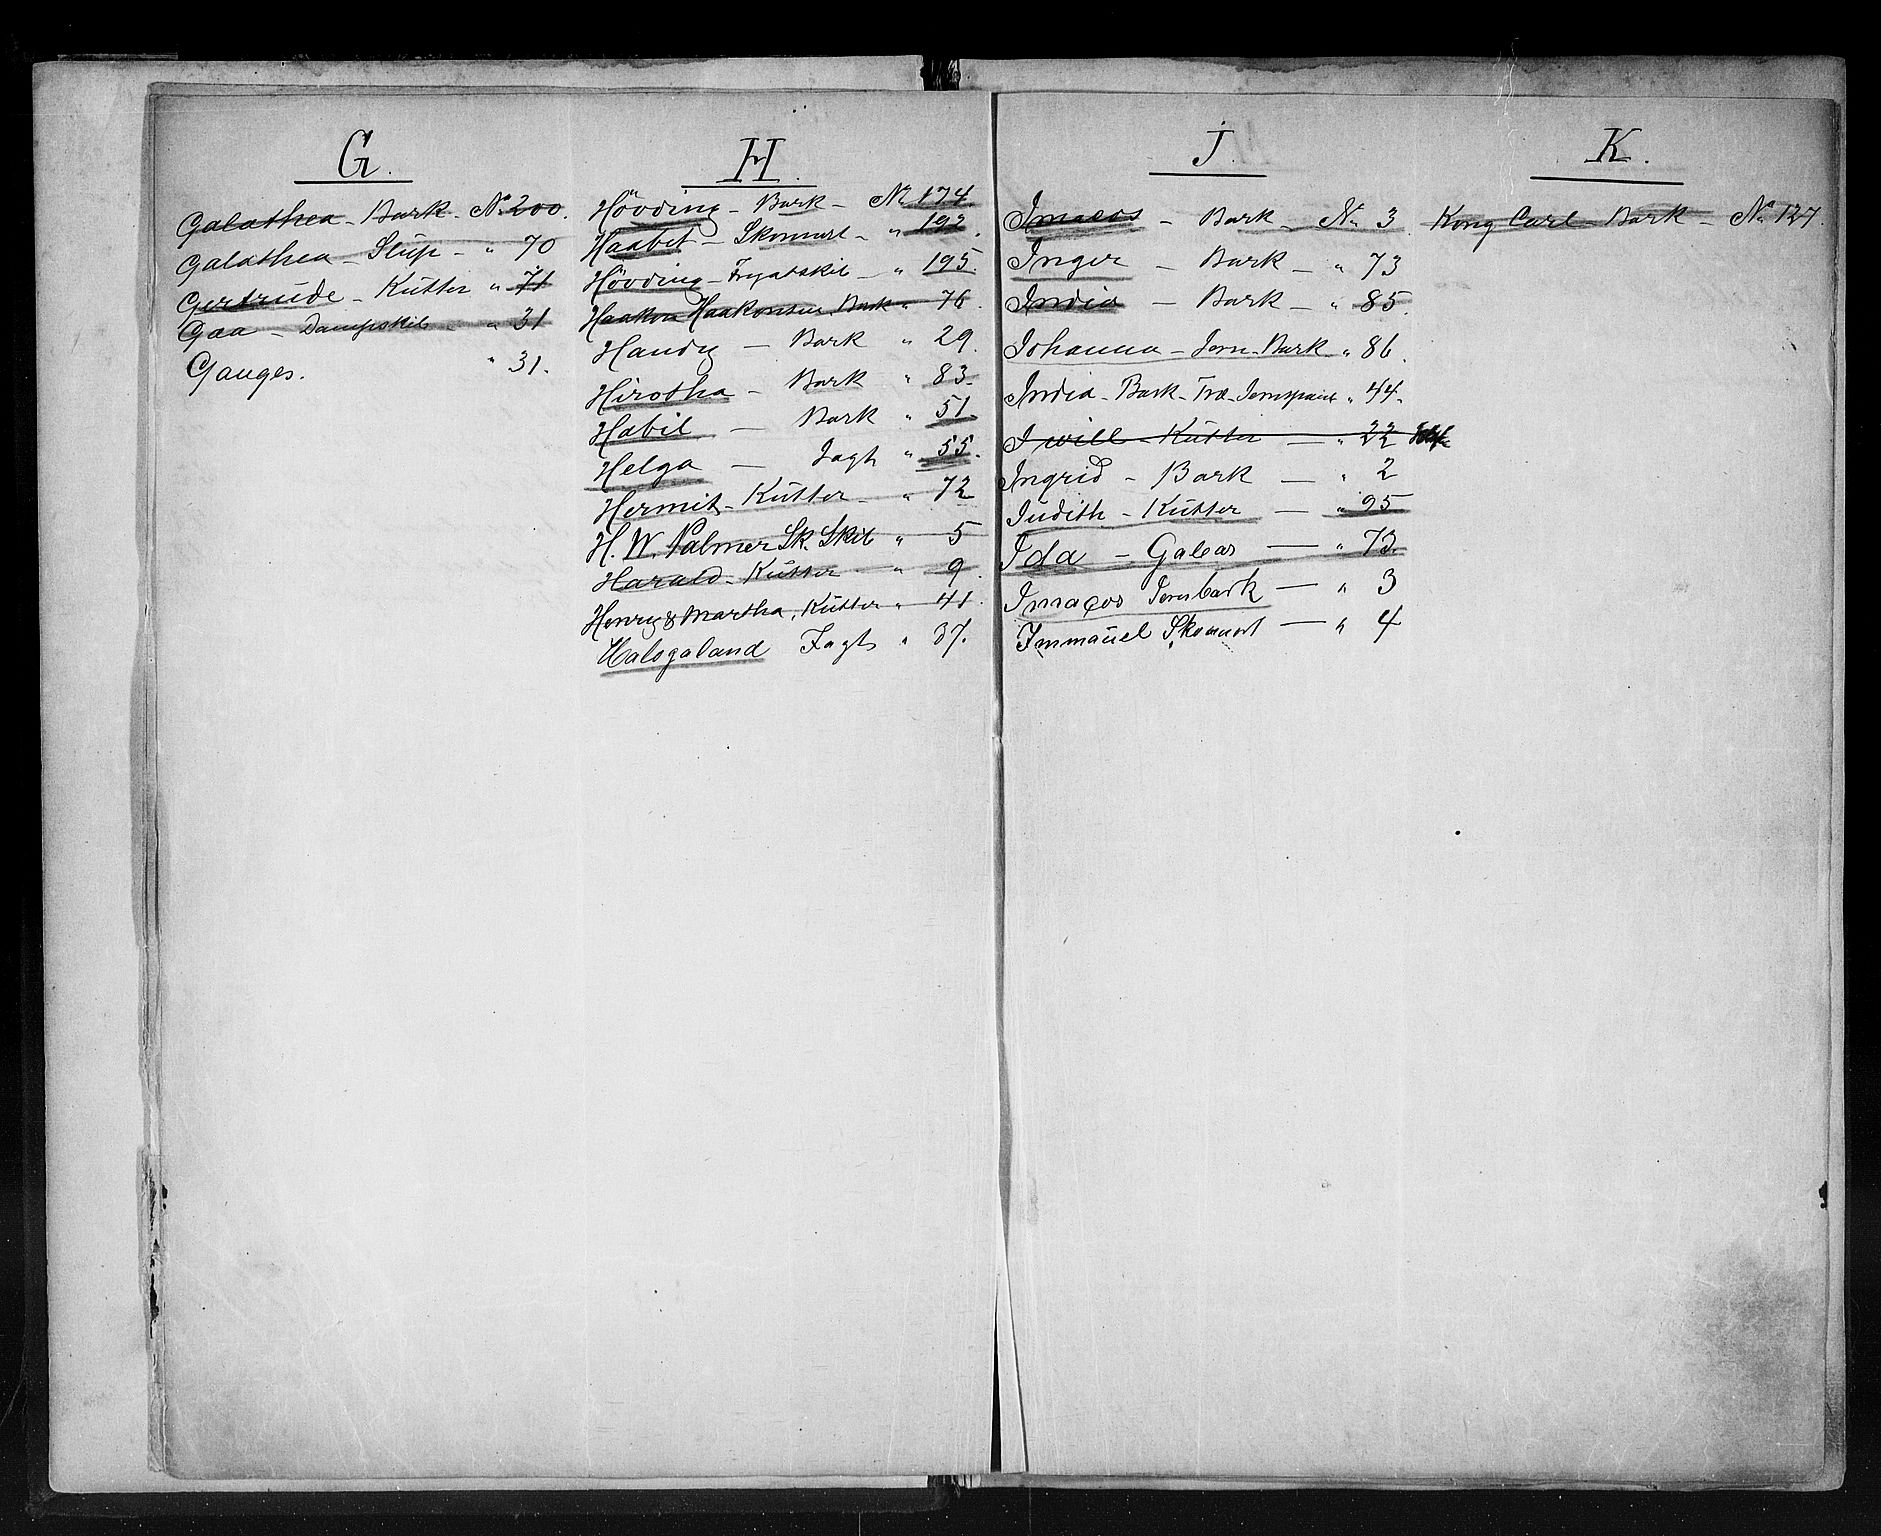 G.
Galathea - Bark - No 200.
Galathea - Slup - " 70
Gertrude - Kutter " 71
Gaa - Dampskib " 31
Ganges. " 31.
H.
Hövding - Bark - No 174
Haabet - Skonnert - " 192.
Hövding - Fregatskib - " 195.
Haakon Haakonsen Bark " 76.
Handy - Bark " 29.
Hirotha - Bark " 83.
Habil - Bark " 51.
Helga - Jagt " 55.
Hermit - Kutter - " 72
H. W. Palmer Sk. Skib " 5
Harald - Kutter " 9.
Henry & Martha, Kutter " 41.
Halogaland Jagt " 37.
J.
Imacos - Bark No 3.
Inger - Bark - " 73
India - Bark - " 85.
Johanna - Jern-Bark " 86.
India - Bark - Træ - " 44.
I will - Kutter - " 22
Ingrid - Bark - " 2
Judith - Kutter - " 95
Ida - Galeas - " 73.
Imacos Jernbark - " 3
Immanuel Skonnert - " 4
K.
Kong Carl Bark - No 127.